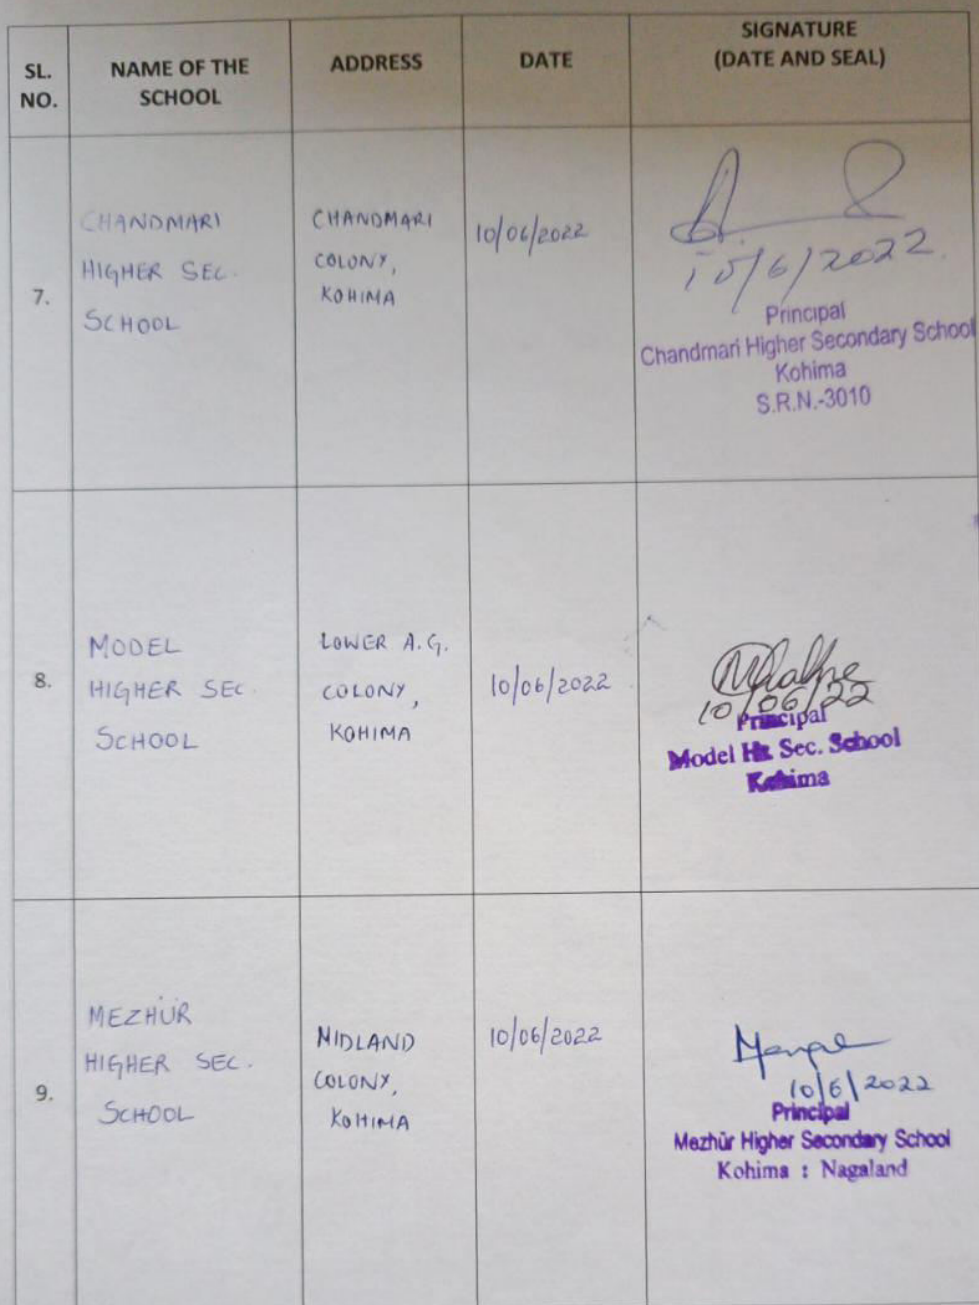 SL. NO.
NAME OF THE SCHOOL
ADDRESS
DATE
SIGNATURE
(DATE AND SEAL)
7.
CHANDMARI
HIGHER SEC.
SCHOOL
CHANDMARI
COLONY,
KOHIMA
10/06/2022
10/6/2022.
Principal
Chandmari Higher Secondary School
Kohima
S.R.N.-3010
8.
MODEL
HIGHER SEC.
SCHOOL
LOWER A.G.
COLONY,
KOHIMA
10/06/2022
10/06/22
Principal
Model Hr. Sec. School
Kohima
9.
MEZHÜR
HIGHER SEC.
SCHOOL
MIDLAND
COLONY,
KOHIMA
10/06/2022
10/6/2022
Principal
Mezhür Higher Secondary School
Kohima : Nagaland